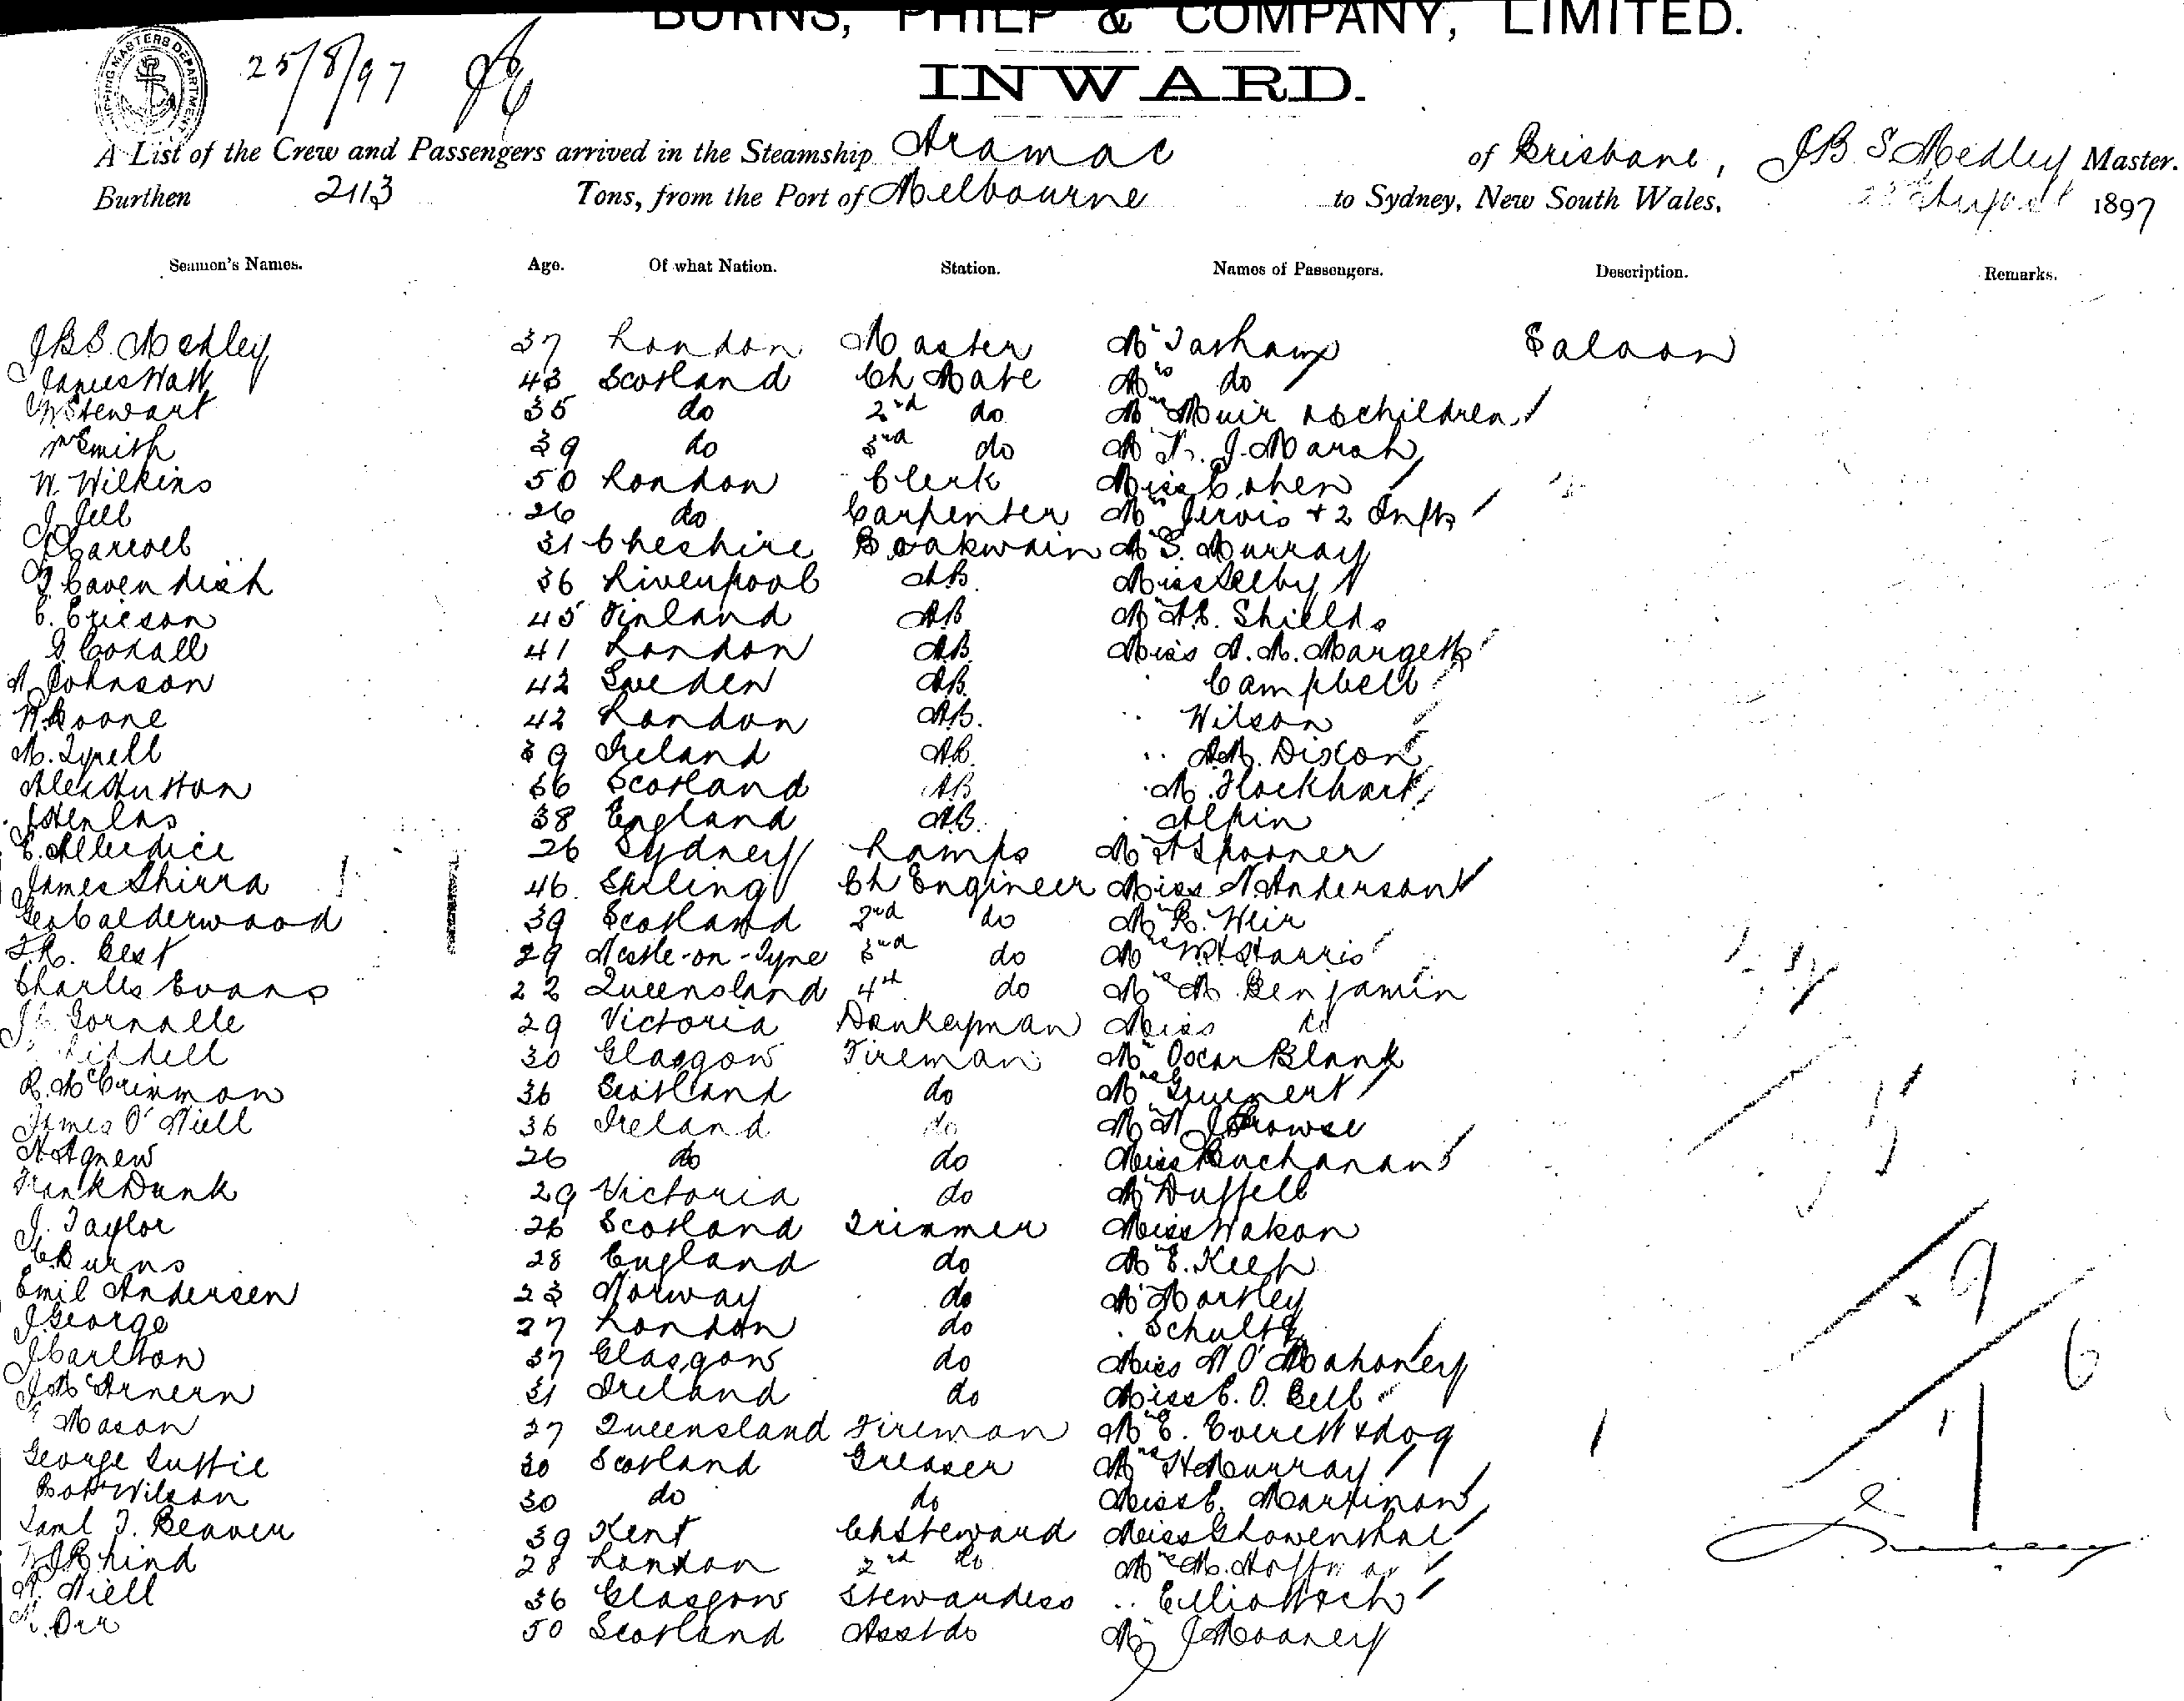 BURNS, PHILP & COMPANY, LIMITED.
INWARD.
SHIPPING MASTERS DEPARTMENT
25/8/97
A List of the Crew and Passengers arrived in the Steamship Aramac of Brisbane, JBS Medley Master.
Burthen 2113 Tons, from the Port of Melbourne to Sydney, New South Wales, August 1897
Seamen's Names. Age. Of what Nation. Station. Names of Passengers. Description. Remarks.
JBS. Medley 37 London Master Mr Tarhamp Saloon
James Watt 43 Scotland Ch Mate Mrs do
W Stewart 35 do 2nd do Mrs Muir & 6 children
Wm Smith 39 do 3rd do Mr F. J. Marsh
W. Wilkins 50 London Clerk Miss Cohen
J. Jell 26 do Carpenter Mrs Jervois + 2 Infts
J Carroll 31 Cheshire Boatswain Mr S. Murray
J. Cavendish 36 Liverpool AB. Miss Selby
C. Ericson 45 Finland AB Mr A.E. Shields
G. Coxall 41 London AB. Miss A. M. Margetts
A Johnson 42 Sweden AB. Campbell
W. Boone 42 London AB. .. Wilson
M. Tyrell 39 Ireland AB. .. A.M. Dixon
Alex Hutton 36 Scotland AB M. Flockhart
38 England AB. Alpin
E. Alberdice 26 Sydney Lamps Mr A Spooner
James Shirra 46 Stirling Ch Engineer Miss N Anderson
Geo Calderwood 39 Scotland 2nd do Mr R. Weir
F.R. Best 29 Ncstle-on-Tyne 3rd do Mrs W.H. Harris
Charles Evans 22 Queensland 4th do Mrs M. Benjamin
J.C. Gornalle 29 Victoria Donkeyman Miss do
Liddell 30 Glasgow Fireman Mr Oscar Blank
R. McCrimmon 36 Scotland do Mrs Gruenert
James O'Niell 36 Ireland do Mr W J Browse
H Agnew 26 do do Miss Buchanan
Frank Dunk 29 Victoria do Mr Duffell
J. Taylor 26 Scotland Trimmer Miss Wakon
C Burns 28 England do Mr E. Keep
Emil Andersen 23 Norway do Mr Mortley
J George 27 London do Schultz
J Carlton 37 Glasgow do Miss N O'Mahoney
J McArnern 31 Ireland do Miss C. O. Bell
Mason 27 Queensland Fireman Mr E. Everett & dog
George Suttie 30 Scotland Greaser Mrs H Murray
Robt Wilson 30 do do Miss C. Martinon
Saml J. Beaver 39 Kent Ch Steward Miss G Lowenthal
Rhind 28 London 2nd do Mrs M. Hoffnar
A. Niell 36 Glasgow Stewardess ..
M. Orr 50 Scotland Asst do Mr J Mooney